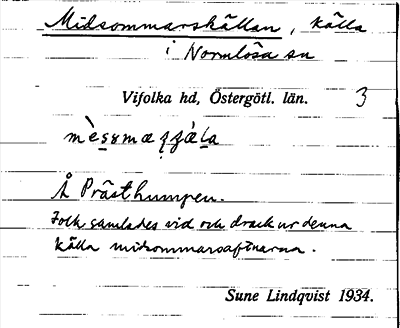 Midsommarskällan, källa
i Normlösa sn
Vifolka hd, Östergötl. län. 3
Å Prästhumpen.
Folk samlades vid och drack ur denna
källa midsommaraftnarna.
Sune Lindqvist 1934.